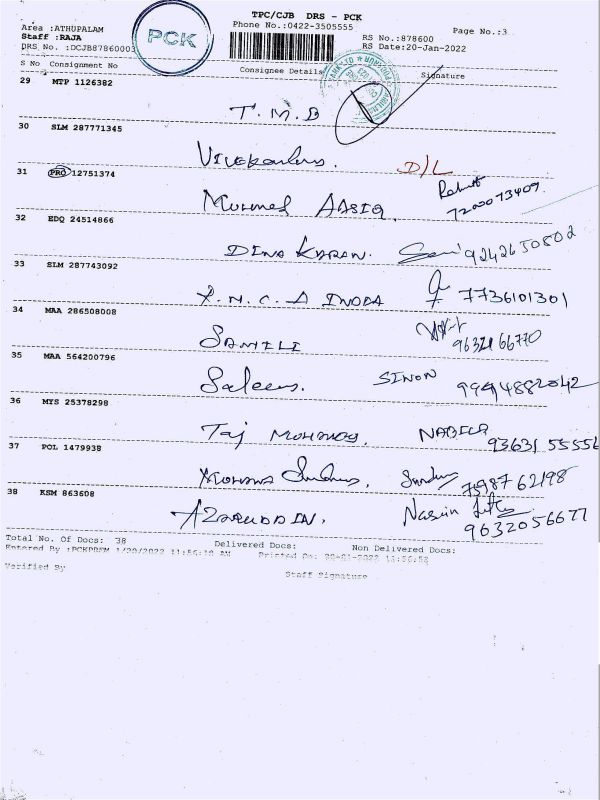 TPC/CJB DRS - PCK
Area :ATHUPALAM
Phone No.:0422-3505555
Page No.:3
Staff :RAJA
RS No.:878600
DRS No. :DCJB87860003
RS Date:20-Jan-2022
PCK
S No Consignment No Consignee Details Signature
29 MTP 1126382
T.M.B
30 SLM 287771345
D/L
31 PRO 12751374
Mohmed AASIQ.
7200073409
32 EDQ 24514866
DINA KARAN. 9242650802
33 SLM 287743092
Y.M.C.A INDRA 7736101301
34 MAA 286508008
35 MAA 564200796
Saleem. SINON 9994882042
36 MYS 25378298
Taj 93631 55556
37 POL 1479938
7598762198
38 KSM 863608
AZARUDDIN. 9632056677
Total No. Of Docs: 38 Delivered Docs: Non Delivered Docs:
Entered By :PCKPRSM 1/20/2022 11:56:18 AM Printed On: 20-01-2022 11:56:52
Verified By
Staff Signature